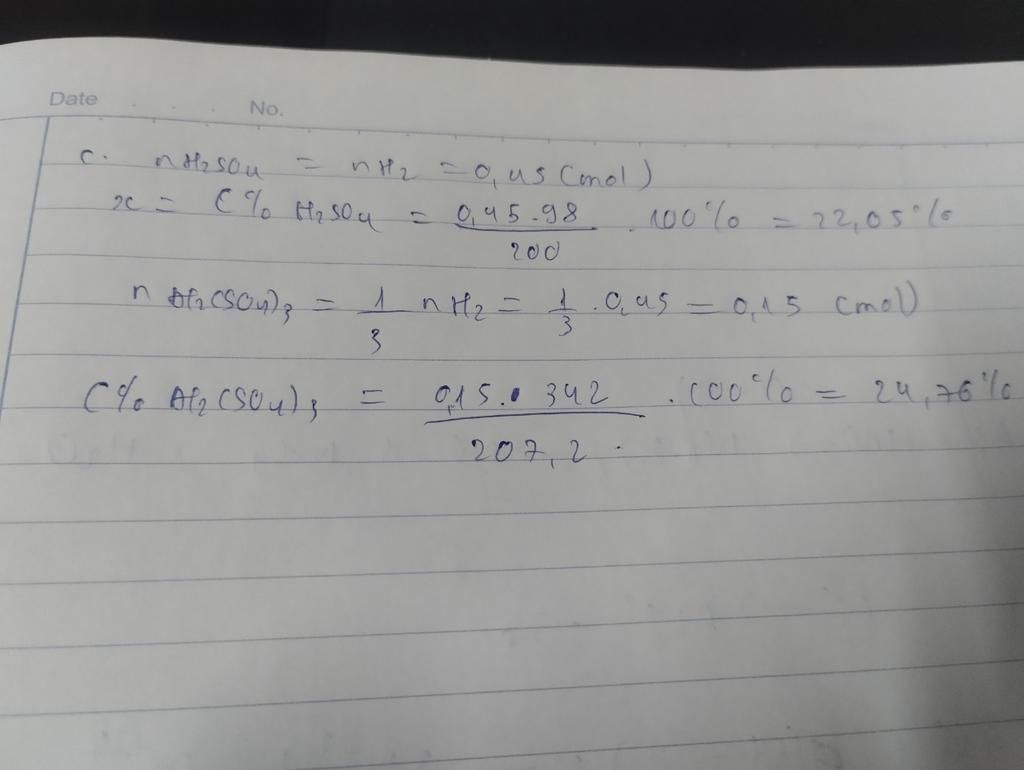 Date . . . . No.
c. nH2SO4 = nH2 = 0,45 (mol)
x = C% H2SO4 = 0,45.98 / 200 . 100% = 22,05%
n Al2(SO4)3 = 1/3 nH2 = 1/3 . 0,45 = 0,15 (mol)
C% Al2(SO4)3 = 0,15 . 342 / 207,2 . 100% = 24,76%